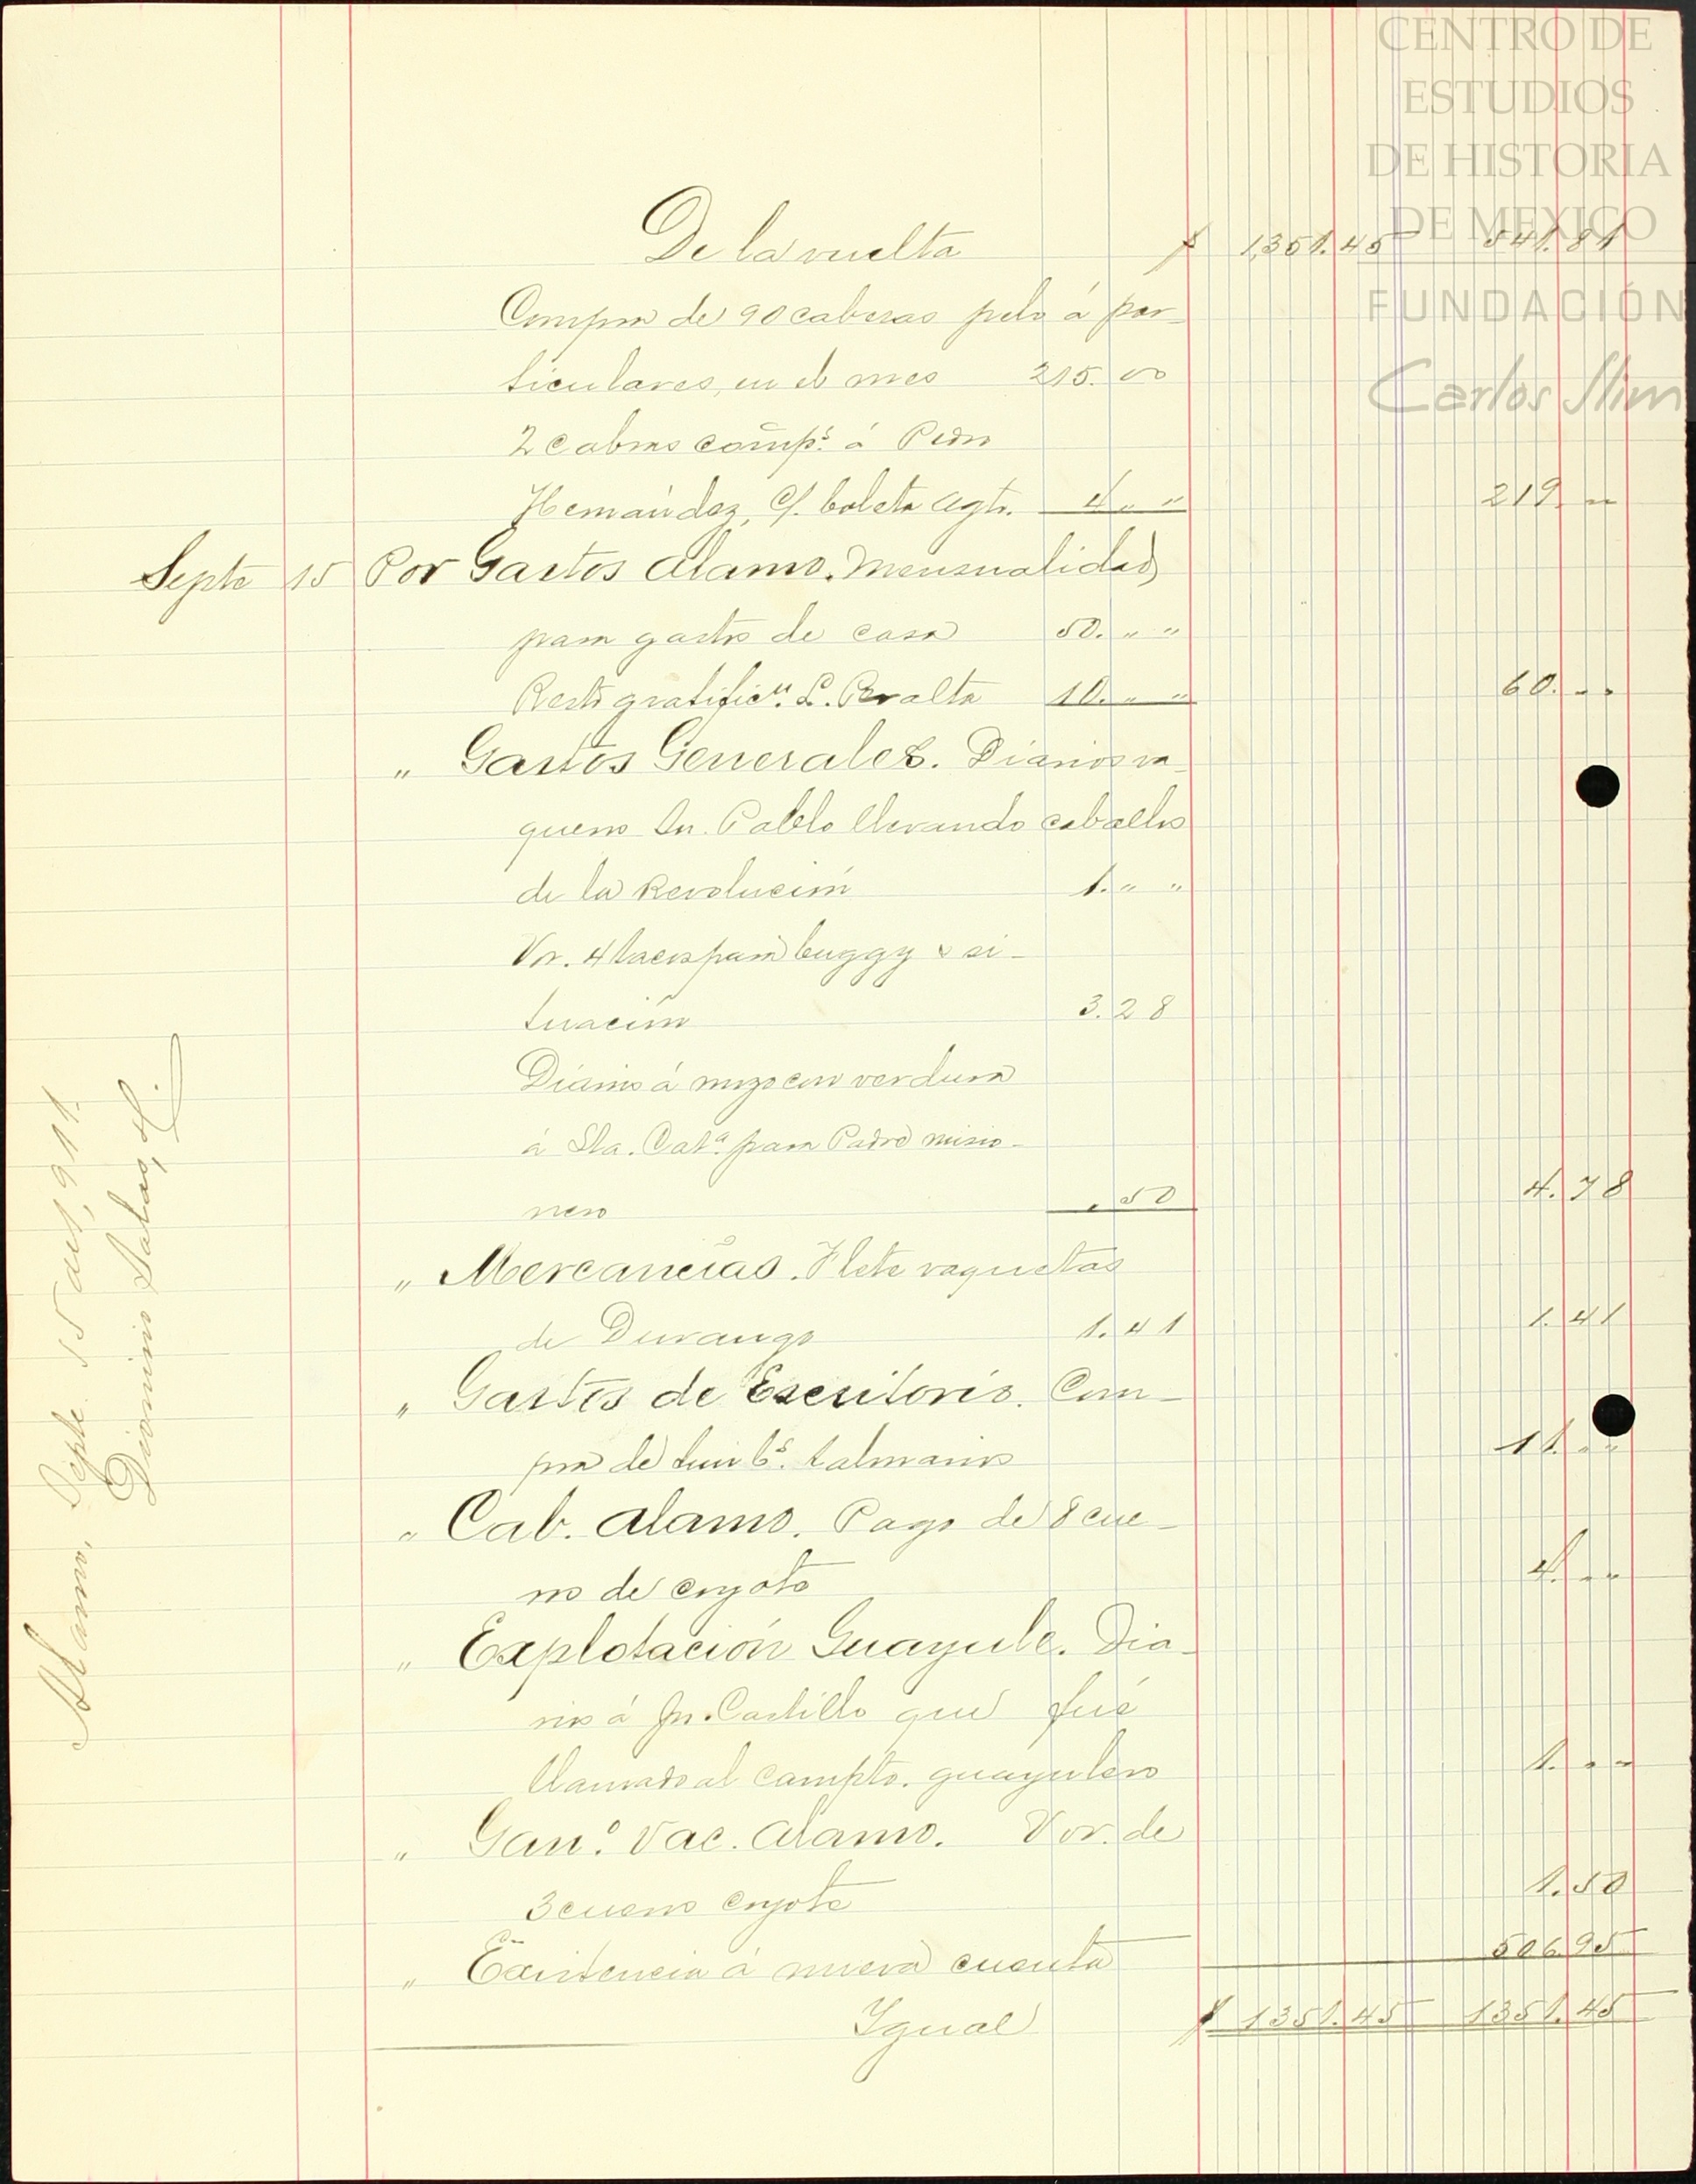 CENTRO DE
ESTUDIOS
DE HISTORIA
DE MEXICO
FUNDACIÓN
Carlos Slim
De la vuelta $ 1,351.45 541.81
Compra de 90 cabezas pelo á par-
ticulares, en el mes 215.00
2 cabras comps. á Pedro
Hernández, C/. boleta Agto. 4 " " 219. "
Septe 15 Por Gastos Alamo. Mensualidad
para gastos de casa 50. " "
Resto gratificn. L. Peralta 10. " " 60. " "
" Gastos Generales. Diarios va-
queros Sn. Pablo llevando caballos
de la Revolución 1. " "
Vr. 4 para buggy & si-
tuación 3.28
Diario á mozo con verdura
á Sta. Cata. para Padre misio-
nero .50 4.78
" Mercancías. Flete vaquetas
de Durango 1.41 1.41
" Gastos de Escritorio. Com-
pra de timbs. 11. " "
" Cab. Alamo. Pago de 8 cue-
ros de coyote 4. " "
" Explotación Guayule. Dia-
rios á Jn. Castillo que fué
llamado al campto. guayulero 1. " "
" Gano. Vac. Alamo. Vor. de
3 cueros coyote 1.50
" Existencia á nueva cuenta 506.95
Igual $ 1351.45 1351.45
Alamo, Septe. 15 de 1,911.
Dionisio Salas, H.